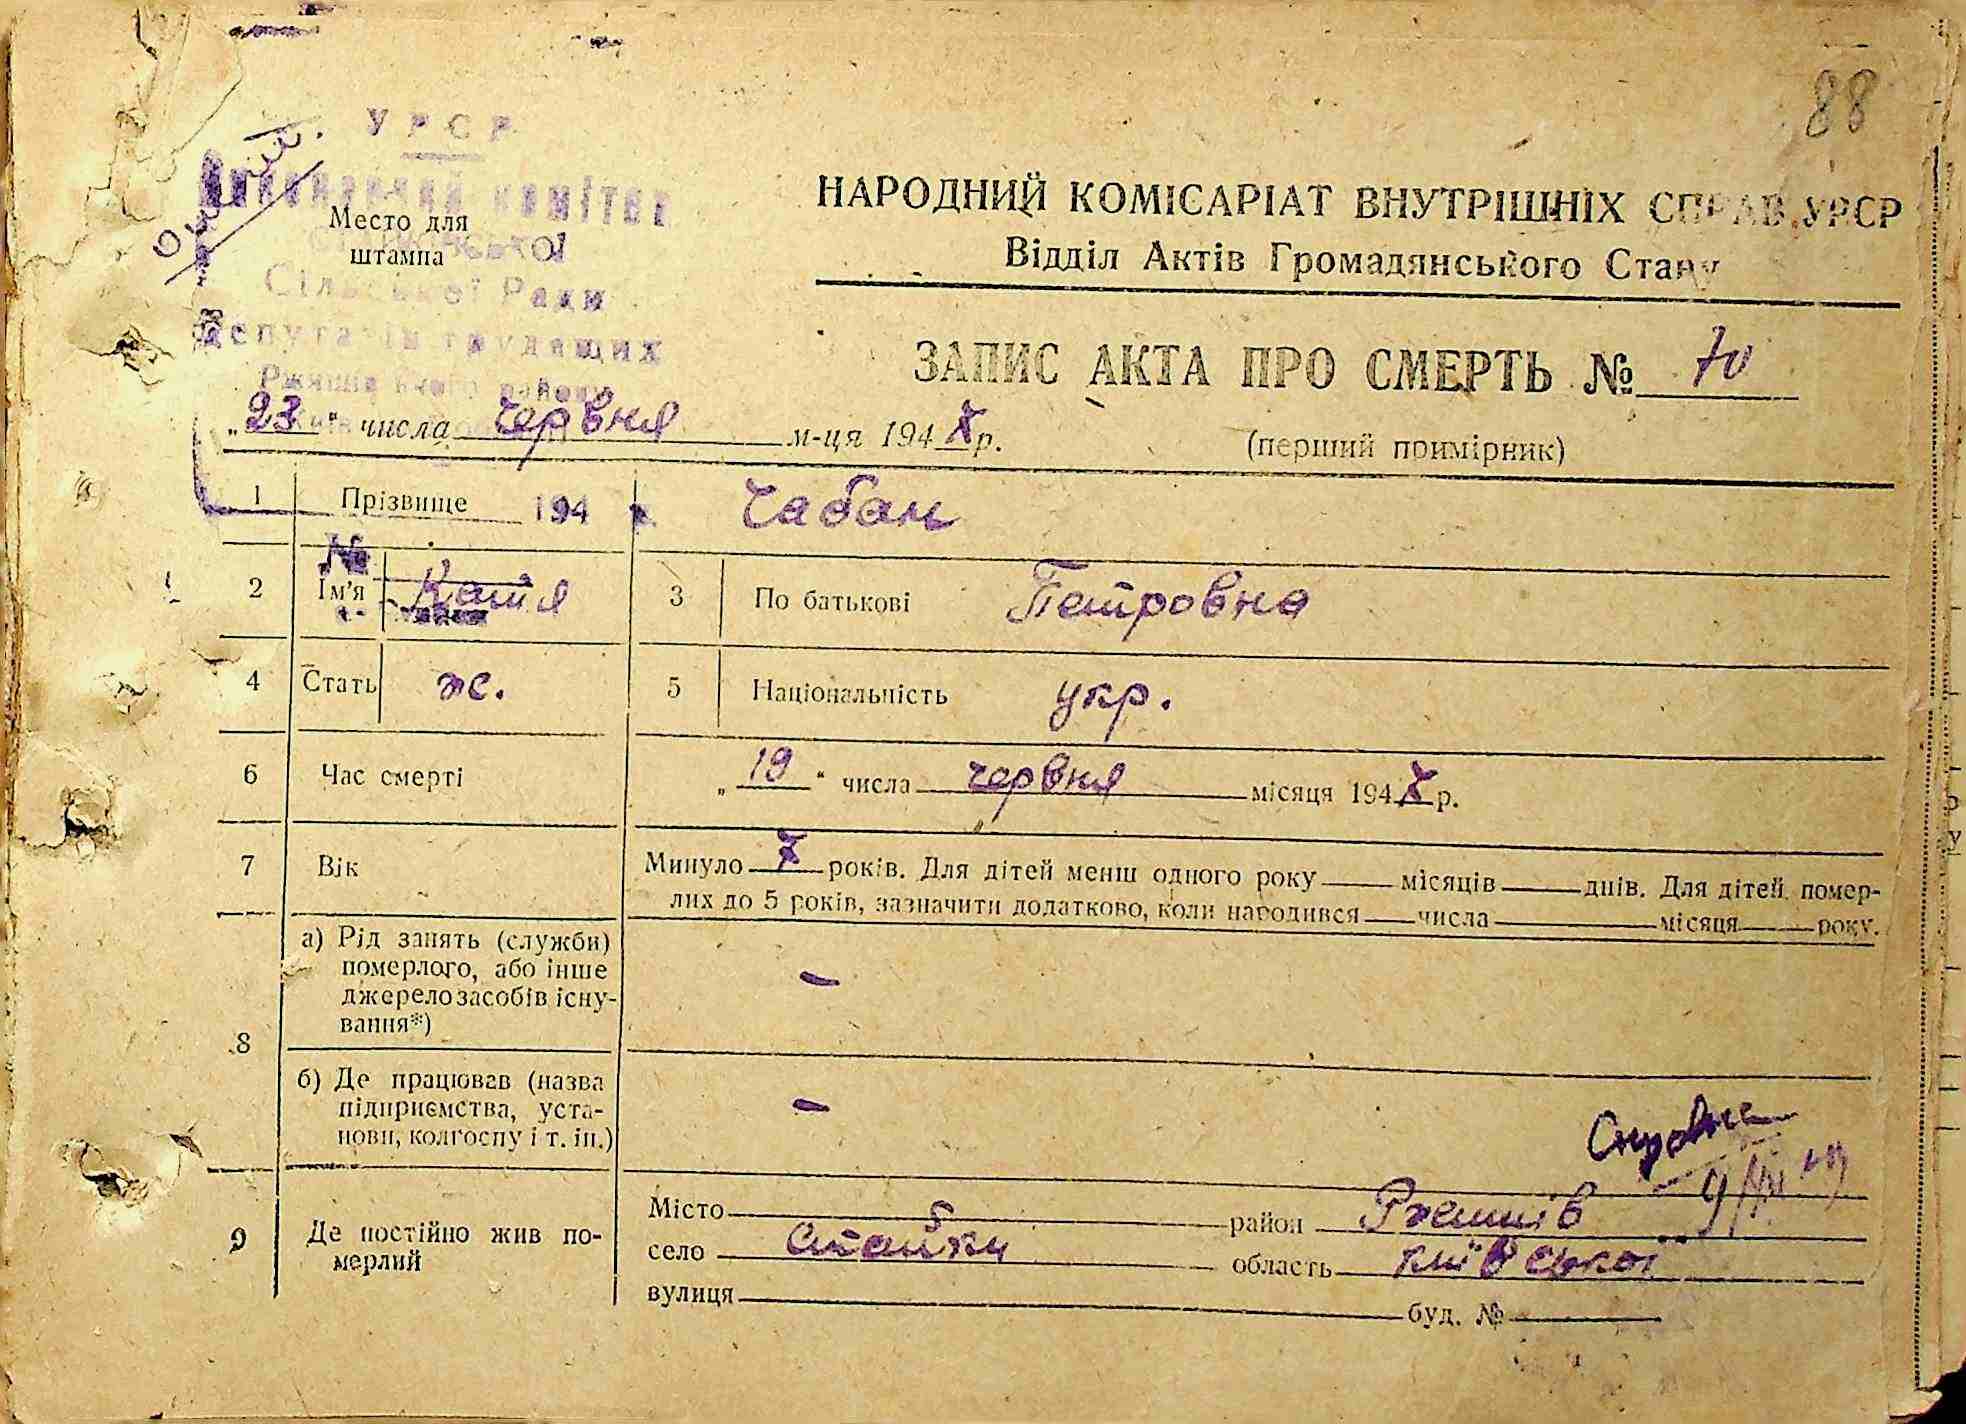 88
УРСР
Виконавчий комітет
Место для
штампа
Сільської Ради
депутатів трудящих
Ржищівського району
194
№
НАРОДНИЙ КОМІСАРІАТ ВНУТРІШНІХ СПРАВ УРСР
Відділ Актів Громадянського Стану
ЗАПИС АКТА ПРО СМЕРТЬ № 70
„23“ числа червня м-ця 1947 р.
(перший примірник)
1 Прізвище Чабан
2 Ім'я Катя 3 По батькові Петровна
4 Стать ж. 5 Національність укр.
6 Час смерті „19“ числа червня місяця 1947 р.
7 Вік Минуло 7 років. Для дітей менш одного року — місяців — днів. Для дітей помер-
лих до 5 років, зазначити додатково, коли народився — числа — місяця — року.
8 а) Рід занять (служби)
померлого, або інше
джерело засобів існу-
вання*) –
б) Де працював (назва
підприємства, уста-
нови, колгоспу і т. ін.) –
9 Де постійно жив по-
мерлий
Місто район Ржищів
село Стайки область київської
вулиця буд. №